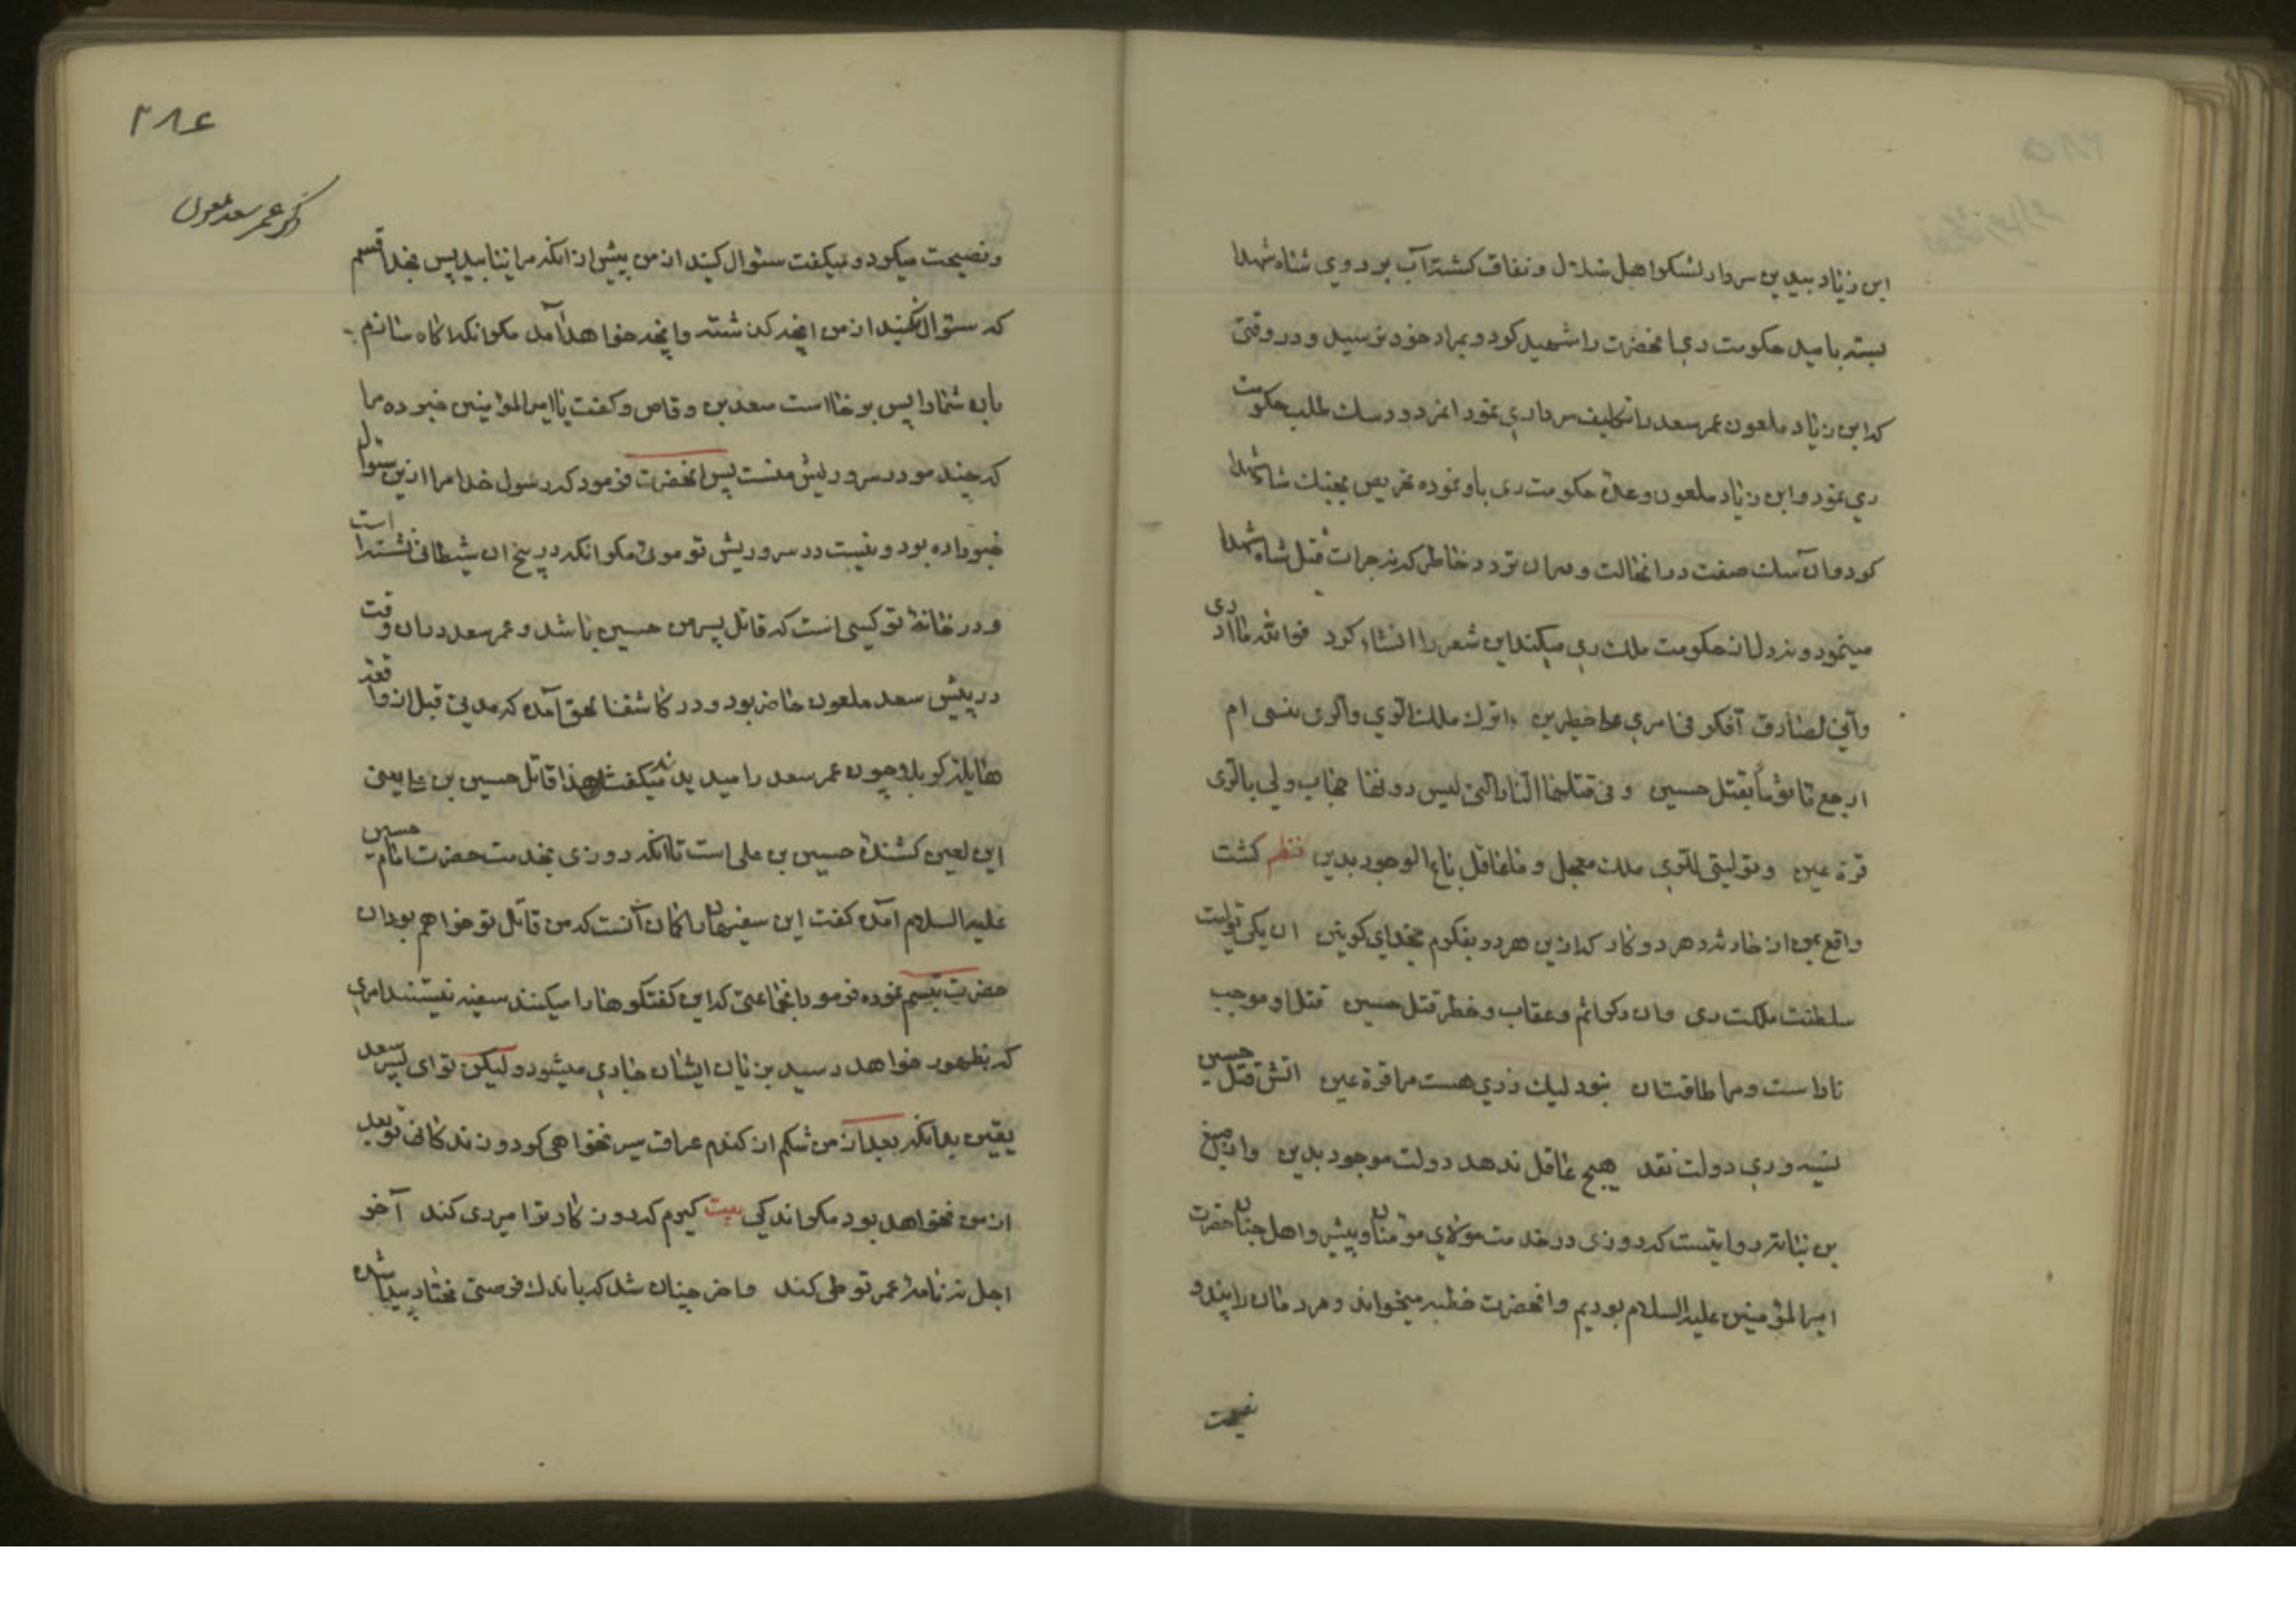 ابن زیاد بیدین سردار لشکر اهل ضلال و نفاق کشته آب بر روی شاه شهدا
بسته بامید حکومت ری انحضرت را شهید کرد و بمراد خود نرسید و در وقتی
که ابن زیاد ملعون عمر سعد را تکلیف سرداری نمود انمردود سک طلب حکومت
ری نمود و ابن زیاد ملعون وعدهٔ حکومت ری باو نموده تحریص بجنک شاه شهدا
کرد و ان سک صفت در انحالت و میان تردد خاطر که نه جرات قتل شاه شهدا
مینمود و نه دل از حکومت ملک ری میکند این شعر را انشاء کرد فوالله ما ادری
وانی لصادق افکر فی امری علی خطرین ءاترک ملک الری والری منیی ام
ارجع ماثوماً بقتل حسین و فی قتله النار التی لیس دونها حجاب ولی بالری
قرة عین و تولیتی للری ملک معجل و ما عاقل باع الوجود بدین نظم کشت
واقع بمن از حادثه دو کار که ازین هر دو بفکرم بخدای کونین ان یکی تولیت
سلطنت ملکت ری وان دکر اثم و عقاب و خطر قتل حسین قتل او موجب
نار است و مرا طاقت ان نبود لیک ز ری هست مرا قرة عین اتش قتل حسین
نسیه و ری دولت نقد هیچ عاقل ندهد دولت موجود بدین و از اصبغ
بن نباته روایتست که روزی در خدمت مولای مؤمنان و پیشرو اهل جنان حضرت
امیر المؤمنین علیه السلام بودیم و انحضرت خطبه میخواند و مردمان را پند و
نصیحت
۲۸۶
ذکر عمر سعد ملعون
و نصیحت میکرد و میکفت سئوال کنید از من پیش از انکه مرا نیابید پس بخدا قسم
که سئوال نکنید از من انچه کذشته و انچه خواهد آمد مکر انکه اکاه سازم
بان شما را پس برخاست سعد بن وقاص و کفت یا امیر المؤمنین خبر ده مرا
که چند مو در سر و ریش منست پس انحضرت فرمود که رسول خدا مرا ازین سئوال
خبر داده بود و نیست در سر و ریش تو موئی مکر انکه در بیخ ان شیطانی نشسته است
و در خانهٔ تو کسی است که قاتل پسر من حسین باشد و عمر سعد در ان وقت
در پیش سعد ملعون حاضر بود و در کاشفنا بحق آمده که مدتی قبل از واقعه
هایله کربلا چون عمر سعد را میدیدند میکفتند هذا قاتل حسین بن علی یعنی
این لعین کشندهٔ حسین بن علی است تا انکه روزی بخدمت حضرت امام حسین
علیه السلام آمده کفت این سفیهان را کمان آنست که من قاتل تو خواهم بود ان
حضرت تبسم نموده فرمود انجماعتی که این کفتکوها را میکنند سفیه نیستند امری
که بظهور خواهد رسید بزبان ایشان جاری میشود و لیکن تو ای پسر سعد
یقین بدانکه بعد از من شکم از کندم عراق سیر نخواهی کرد و زندکانی تو بعد
از من نخواهد بود مکر اندکی بیت کیرم که دو نکار ترا میری کند آخر
اجل نه نامهٔ عمر تو طی کند و اخر چنان شد که باندک فرصتی مختار پیدا شده